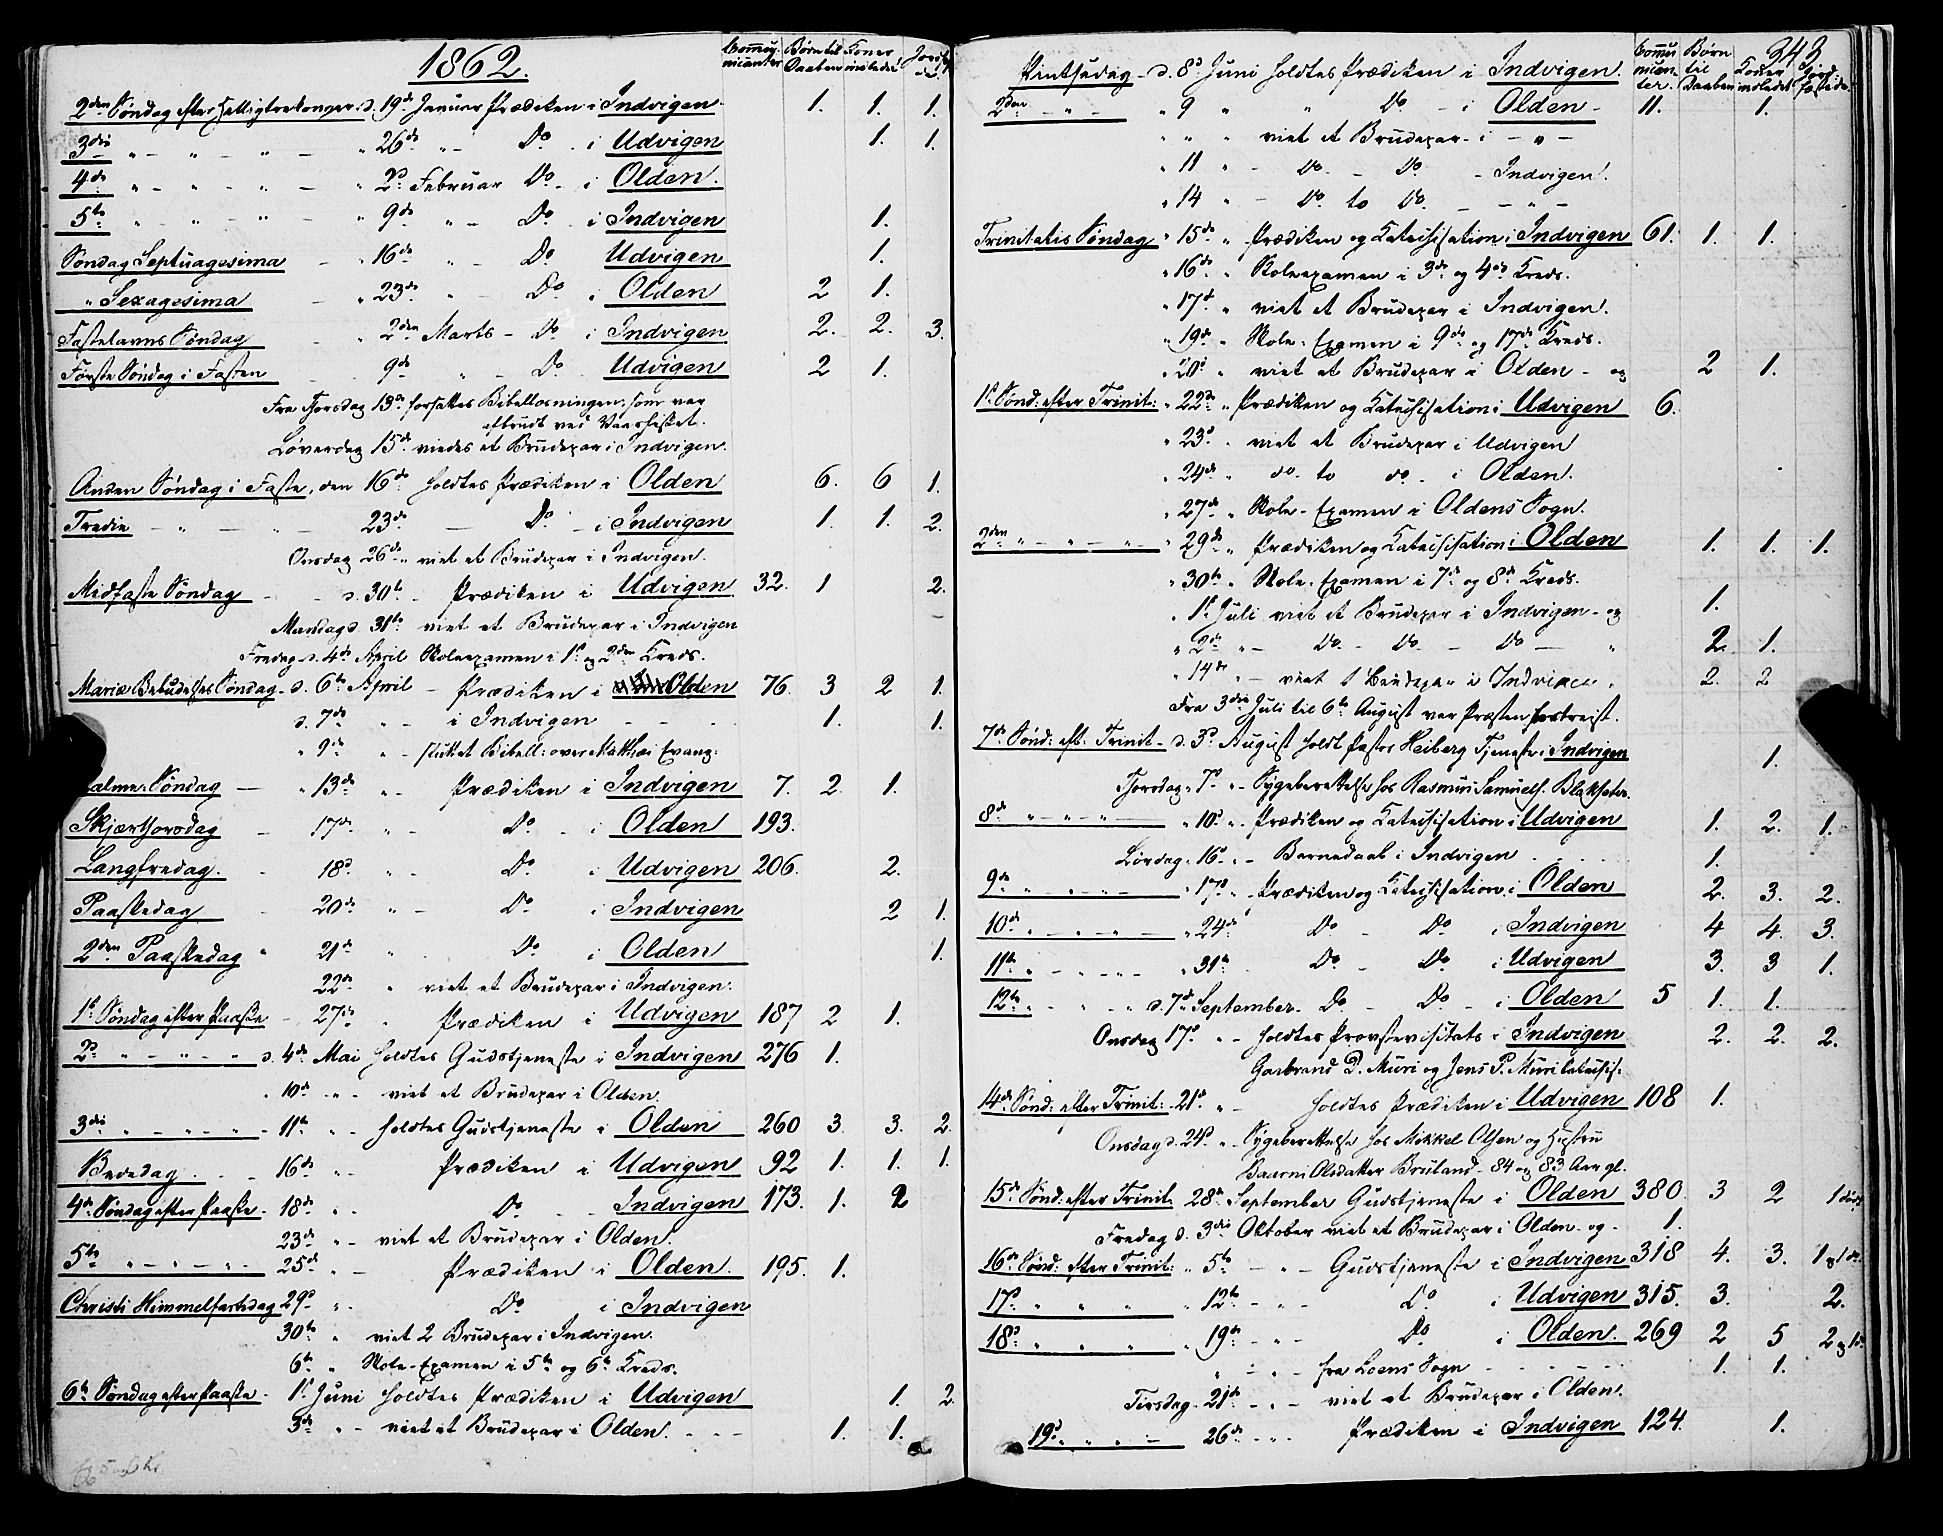 1862.
Commu- Børn til Koner Jordf.
nicanter Daaben
2den Søndag efter Helligtrekonger d. 19de Januar Prædiken i Indvigen. 1. 1. 1.
3die " - " - " - " 26de " - Do - i Udvigen 1. 1.
4de " - " - " - " 2d Februar Do - i Olden.
5te " - " - " - " 9de " - Do. i Indvigen 1.
Søndag Septuagesima - " 16de " - Do Udvigen 1.
" Sexagesima - " 23de " - Do i Olden 2 1.
Fastelavns Søndag - " 2den Marts - Do i Indvigen 2. 2. 3.
Første Søndag i Fasten - 9de " - Do Udvigen 2 1.
Fra Torsdag 13de forsattes Bibellæsningen, som var
afbrudt ved Vaarfisket.
Løverdag 15de viedes et Brudepar i Indvigen.
Anden Søndag i Faste, den 16de holdtes Prædiken i Olden 6. 6 1.
Tredie - " - " - 23de - Do - i Indvigen 1. 1. 2.
Onsdag 26de " viet et Brudepar i Indvigen.
Midfaste Søndag - - d. 30te - Prædiken i Udvigen 32. 1 2.
Mandag d. 31te viet et Brudepar i Indvigen
Fredag d. 4de April Skoleexamen i 1ste og 2den Kreds.
Mariæ Bebudelses Søndag - d. 6te April - Prædiken i Olden 76. 3 2 1.
d. 7de " - i Indvigen - - - 1. 1.
" 9de " - sluttet Bibell: over Matthæi Evang:
Palme-Søndag - " 13de " - Prædiken i Indvigen 7. 2. 1.
Skjærthorsdag - 17de " - Do - i Olden 193.
Langfredag. - 18d " - Do i Udvigen 206. 2.
Paaskedag - 20de " - Do i Indvigen 2 1.
2den Paaskedag " 21de " - Do i Olden 1.
22de " viet et Brudepar i Indvigen.
1ste Søndag efter Paaske - 27de " Prædiken i Udvigen 187 2 1.
2d " - " - " d. 4de Mai holdtes Gudstjeneste i Indvigen 276 1.
" 10de " - viet et Brudepar i Olden.
3die " - " - " - 11te " - holdtes Gudstjeneste i Olden 260 3. 3. 2.
Bededag. - - 16de " - Prædiken i Udvigen 92 1. 1. 1.
4de Søndag efter Paaske - 18de " - Do - - Indvigen 173. 1. 2
23de " - viet et Brudepar i Olden.
5te " - " - " - 25de " - Prædiken i Olden. 195. 1.
Christi Himmelfartsdag 29d " - Do i Indvigen
30te " viet 2 Brudepar i Indvigen.
6te " Skole-Examen i 5te og 6te Kreds.
6te Søndag efter Paaske - 1ste Juni holdtes Prædiken i Udvigen 1. 2.
3de " - viet et Brudepar i Olden. - - - 1. 1.
343
Commu- Børn Koner Jord-
nican- til
ter. Daaben
Pintsedag - d. 8d Juni holdtes Prædiken i Indvigen.
2den - " - " 9 " " Do - i Olden - 11. 1.
" " " viet et Brudepar - i - " -
" 11 " - Do - Do - Indvigen.
" 14 " - Do to Do. - - " -
Trinitatis Søndag " 15de " Prædiken og Katechisation i Indvigen 61. 1. 1.
" 16de " Skoleexamen i 3de og 4de Kreds.
" 17d " viet et Brudepar i Indvigen.
" 19de " Skole-Examen i 9de og 17de Kreds.
" 20d " viet et Brudepar i Olden - og 2 1.
1ste Sønd: efter Trinit: " 22de " Prædiken og Katechisation i Udvigen 6.
" 23d " viet et Brudepar i Udvigen
" 24de " do. to do - i Olden.
" 27de " Skole-Examen i Oldens Sogn.
2den " - " - " - " 29de " Prædiken og Katechisation i Olden 1. 1. 1.
" 30te " Skole-Examen i 7de og 8de Kreds.
" 1ste Juli viet et Brudepar i Indvigen - og 1.
" 2de " - Do - Do - Do - " 2. 1.
" 14de " - viet 1 Brudepar i Indvigen. 2. 2
Fra 3die Juli til 6te August var Præsten bortreist.
7de Sønd: eft. Trinit - d. 3d August holdt Pastor Heiberg Tjeneste i Indvigen 1.
Torsdag " 7d " - Sygeberettelse hos Rasmus Samuels. Blaksæter.
8de " - " - " " 10d " - Prædiken og Katechisation i Udvigen 1. 2. 1.
Lørdag " 16d " - Barnedaab i Indvigen - - - 1.
9de " - " - " " 17d " - Prædiken og Katechisation i Olden 2. 3. 2.
10de " - " - " " 24de Do - Do i Indvigen 4 4. 3.
11te " - " - " " 31te Do - Do i Udvigen 3. 3 1.
12te " - " - " d. 7de September - Do - Do - i Olden 5 1. 1.
Onsdag 17d " - holdtes Provstevisitats i Indvigen 2. 2. 2.
Garbrand D. Muri og Jens P. Muri Catechis:
14de Sønd: efter Trinit: - 21d " - holdtes Prædiken i Udvigen 108 1.
Onsdag d. 24d " - Sygeberettelse hos Mikkel Olsen og Hustru
Olsdatter Bruland - 84 og 83 Aar gl.
15de Sønd: efter Trinit. 28de September Gudstjeneste i Olden 380. 3 2 1
Fredag d. 3die Oktober viet et Brudepar i Olden - og - 1.
16de Sønd: efter Trinit: " 5te - " - Gudstjeneste i Indvigen 318 4. 3. 1
17d " " " " 12te - " - Do i Udvigen 315. 3. 2.
18d " " " " 19de - " - Do i Olden. 269 2 5 2
" - " fra Loens Sogn - - - - 1. 1.
Tirsdag - 21de - " - viet et Brudepar i Olden.
19d " " " - 26de - " Prædiken i Indvigen 124. 1.